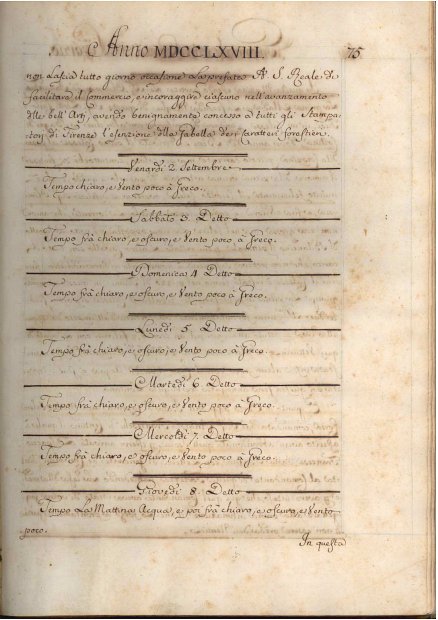 Anno MDCCLXVIII. 75
non Lascia tutto giorno occasione La prefata A. S. Reale di
facilitare il Commercio, e incoraggire ciascuno nell'avanzamento
delle bell'Arti, avendo benignamente concesso a tutti gli Stampa-
tori di Firenze l'esenzione della Gabella de' Caratteri forestieri.
Venardi 2. Settembre
Tempo chiaro, e Vento poco à Greco.
Sabbato 3. Detto
Tempo frà chiaro, e oscuro, e Vento poco à Greco.
Domenica 4. Detto
Tempo frà chiaro, e oscuro, e Vento poco à Greco.
Lunedi 5. Detto
Tempo frà chiaro, e oscuro, e Vento poco à Greco.
Martedi 6. Detto
Tempo frà chiaro, e oscuro, e Vento poco à Greco.
Mercoldi 7. Detto
Tempo frà chiaro, e oscuro, e Vento poco à Greco.
Giovedi 8. Detto
Tempo La Mattina Acqua, e poi frà chiaro, e oscuro, e Vento
poco.
In questa